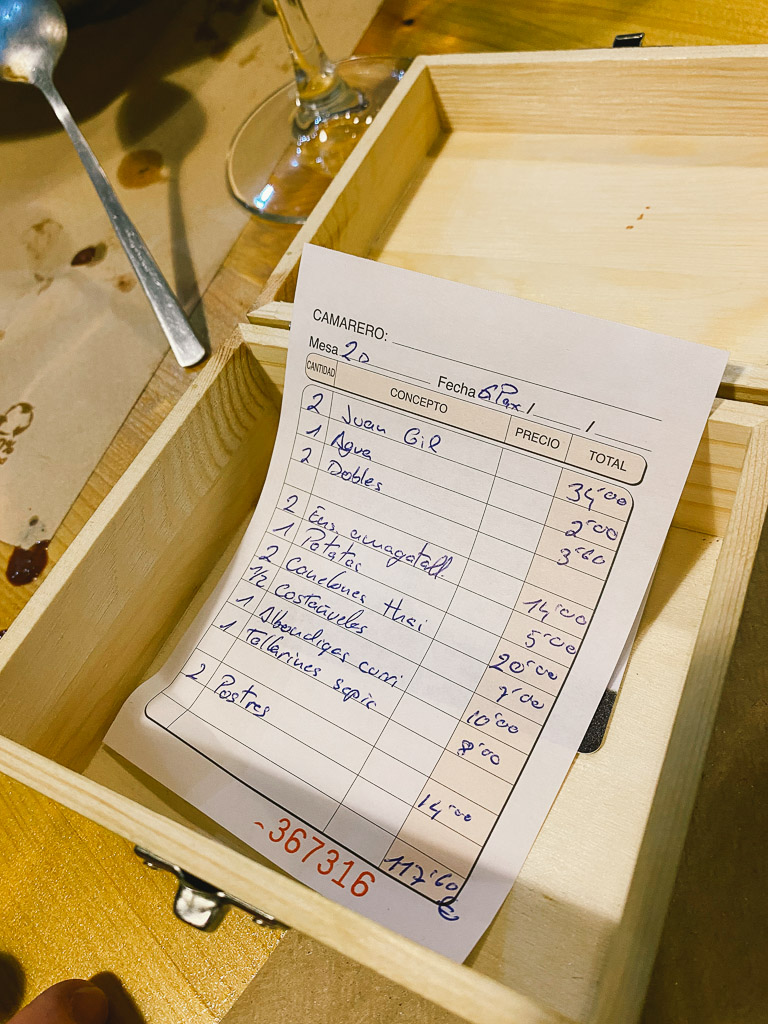 CAMARERO:
Mesa 2D Fecha 6 Pax / /
CANTIDAD CONCEPTO PRECIO TOTAL
2 Juan Gil 34'00
1 Agua 2'00
2 Dobles 3'60
2 Ens. amagatall 14'00
1 Patatas 5'00
2 Canelones thai 20'00
1/2 Costañueles 7'00
1 Albondigas curri 10'00
1 Tallarines sepia 8'00
2 Postres 14'00
117'60
€
367316